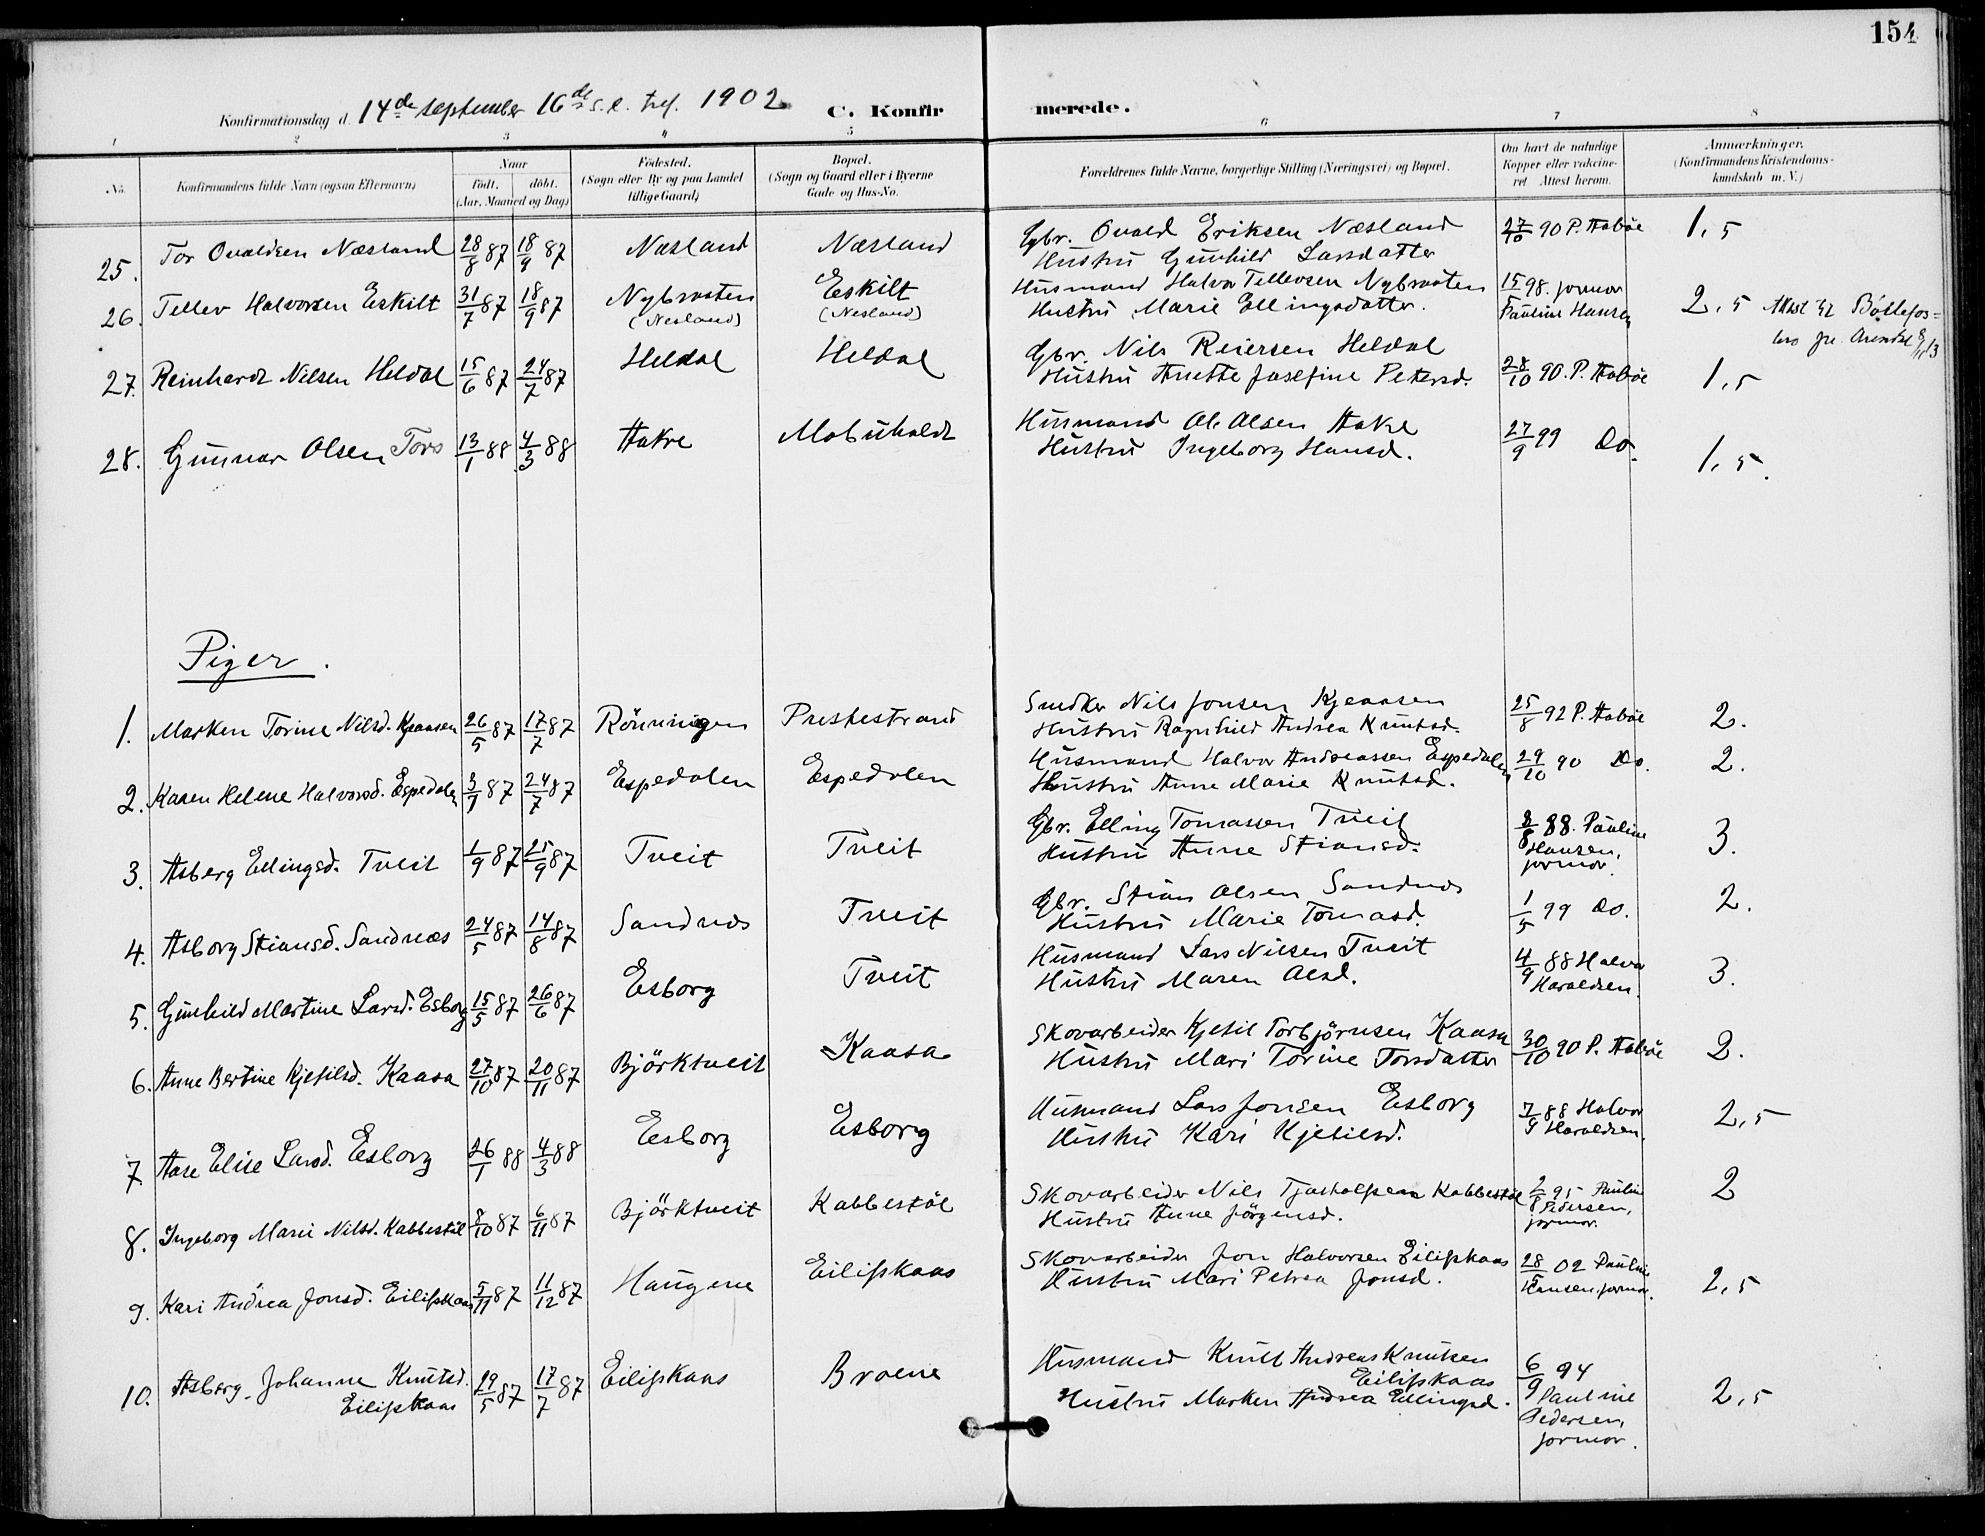 154
Konfirmationsdag d. 14de september 16de s. e. tref. 1902
C. Konfirmerede.
1 2 3 4 5 6 7 8
No.
Konfirmandens fulde Navn (ogsaa Efternavn)
Naar
født. døbt.
(Aar, Maaned og Dag)
Fødested.
(Sogn eller By og paa Landet
tillige Gaard)
Bopæl.
(Sogn og Gaard eller i Byerne
Gade og Hus-No.
Forældrenes fulde Navne, borgerlige Stilling (Næringsvei) og Bopæl.
Om havt de naturlige
Kopper eller vakcine-
ret Attest herom.
Anmærkninger,
(Konfirmandens Kristendoms-
kundskab m. V.)
25. Tor Ovaldsen Næsland 28/8 87 18/9 87 Næsland Næsland Gbr. Ovald Eriksen Næsland 27/10 90 P. Aabøe 1,5
Hustru Gunhild Larsdatter
26. Tellev Halvorsen Eskilt 31/7 87 18/9 87 Nybraaten Eskilt Husmand Halvor Tellevsen Nybraaten 15/5 98. jormor 2,5 Attest til Bøllefos-
(Nesland) (Nesland) Hustru Marie Ellingsdatter. Pauline Hansen
bro pr. Arendal
27. Reinhardt Nilsen Heldal 15/6 87 24/7 87 Heldal Heldal Gbr. Nils Reiersen Heldal 28/10 90. P. Aabøe 1,5
Hustru Anette Josefine Petersd.
28. Gunnar Olsen Tors 13/1 88 4/3 88 Aakre Mobuholdt Husmand Ole Olsen Aakre 27/9 99 Do. 1,5.
Hustru Ingeborg Hansd.
Piger.
1. Marken Torine Nilsd. Kjeaasen 26/5 87 17/7 87 Rønningen Prestestrand Snedker Nils Jonsen Kjeaasen 25/8 92 P. Aabøe 2.
Hustru Ragnhild Andrea Knutsd.
2. Karen Helene Halvorsd. Espedalen 3/7 87 24/7 87 Espedalen Espedalen Husmand Halvor Andreassen Espedalen 29/10 90 Do. 2.
Hustru Anne Marie Knutsd.
3. Asberg Ellingsd. Tveit 1/9 87 25/9 87 Tveit Tveit Gbr. Elling Tomassen Tveit 8/8 88. Pauline 3.
Hustru Anne Stiansd. Hansen,
jormor.
4. Asborg Stiansd. Sandnæs 24/5 87 14/8 87 Sandnæs Tveit Gbr. Stian Olsen Sandnæs 1/5 99 Do. 2.
Hustru Marie Tomasd.
5. Gunhild Martine Larsd. Esborg 15/5 87 26/6 87 Esborg Tveit Husmand Lars Nilsen Tveit 4/9 88 Halvor 3.
Hustru Maren Olsd. Haraldsen.
6. Anne Bertine Kjetilsd. Kaasa 27/10 87 20/11 87 Bjørktveit Kaasa Skovarbeider Kjetil Torbjørnsen Kaasa 30/10 90 P. Aabøe 2.
Hustru Mari Torine Torsdatter
7 Aase Elise Larsd. Esborg 26/1 88 4/3 88 Esborg Esborg Husmand Lars Jonsen Esborg 7/9 88 Halvor 2,5
Hustru Kari Kjetilsd. Haraldsen.
8. Ingeborg Marie Nilsd. Kabbestøl 8/10 87 6/11 87 Bjørktveit Kabbestøl Skovarbeider Nils Tjostolfsen Kabbestøl 2/8 95 Pauline 2
Hustru Anne Jørgensd. Pedersen,
jormor.
9. Kari Andrea Jonsd. Eilifskaas 5/11 87 11/12 87 Haugene Eilifskaas Skovarbeider Jon Halvorsen Eilifskaas 28/5 02 Pauline 2,5
Hustru Mari Petrea Jonsd. Hansen, jormor.
10. Asberg Johanne Knutsd. 29/5 87 17/7 87 Eilifskaas Broene Husmand Knut Andreas Knutsen 6/9 94 2,5
Eilifskaas Eilifskaas
Hustru Marken Andrea Ellingsd. Pauline
Pedersen,
jormor.